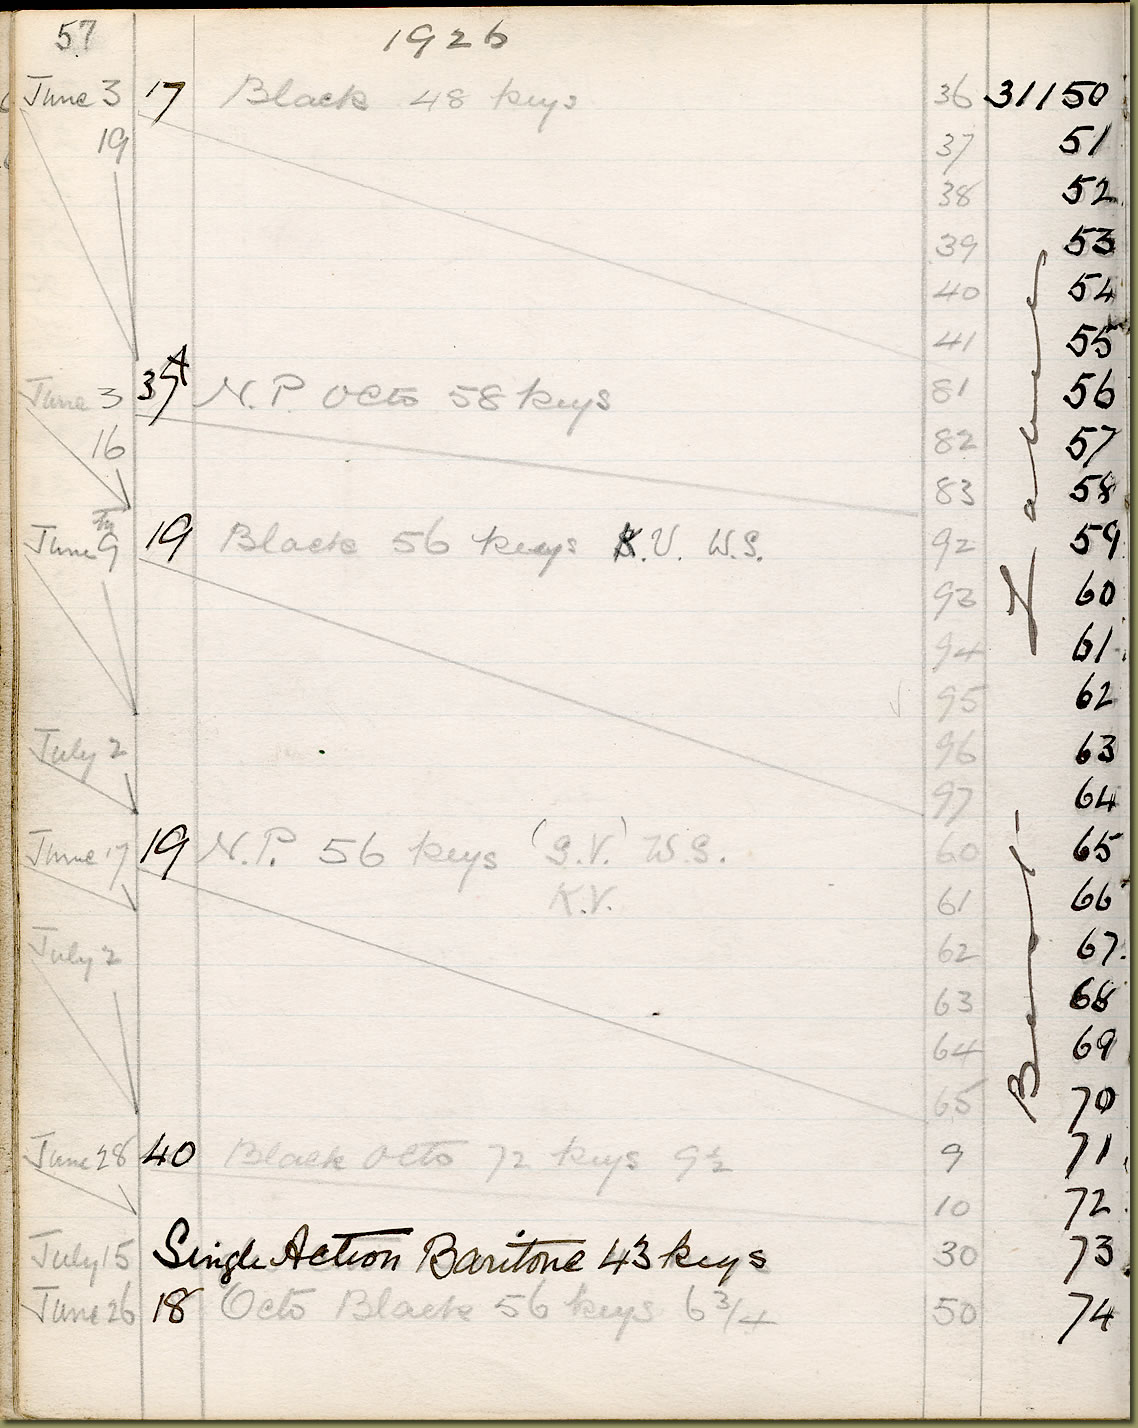 57 1926
June 3 17 Black 48 keys 36 31150
19 37 51
38 52
39 53
40 54
41 55
June 3 35A N.P. Octo 58 keys 81 56
16 82 57
83 58
June 9 19 Black 56 keys K.V. W.S. 92 59
93 60
94 61
95 62
July 2 96 63
97 64
June 17 19 N.P. 56 keys (S.V.) W.S. 60 65
K.V. 61 66
July 2 62 67
63 68
64 69
65 70
June 28 40 Black Octo 72 keys 9½ 9 71
10 72
July 15 Single Action Baritone 43 keys 30 73
June 26 18 Octo Black 56 keys 6 3/4 50 74